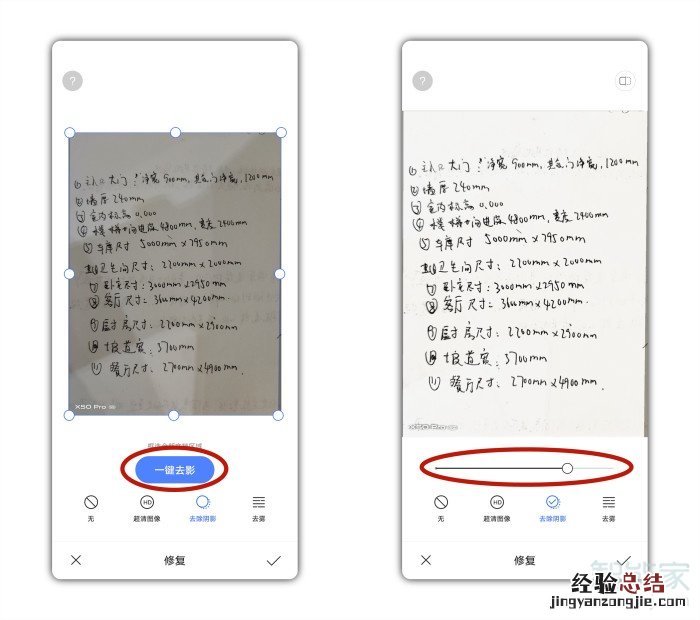 ?
① 主入口大门：净宽900mm, 其余门净宽,1200mm
② 墙厚240mm
③ 室内标高0.000
④ 楼梯间进深4800mm, 宽度2400mm
⑤ 车库尺寸 5000mm×7950mm
卫生间尺寸：2700mm×2000mm
⑦ 卧室尺寸：3000mm×2950mm
⑧ 客厅尺寸：3600mm×4200mm
⑨ 厨房尺寸：2200mm×2900mm
坡道宽：3700mm
⑪ 餐厅尺寸：2700mm×4900mm
X50 Pro 5G
一键去影
无
HD
超清图像
去除阴影
去雾
修复
?
① 主入口大门：净宽900mm, 其余门净宽,1200mm
② 墙厚240mm
③ 室内标高0.000
④ 楼梯间进深4800mm, 宽度2400mm
⑤ 车库尺寸 5000mm×7950mm
卫生间尺寸：2700mm×2000mm
⑦ 卧室尺寸：3000mm×2950mm
⑧ 客厅尺寸：3600mm×4200mm
⑨ 厨房尺寸：2200mm×2900mm
坡道宽：3700mm
⑪ 餐厅尺寸：2700mm×4900mm.
X50 Pro
无
HD
超清图像
去除阴影
去雾
修复
智能家
经验总结
jingyanzongjie.com